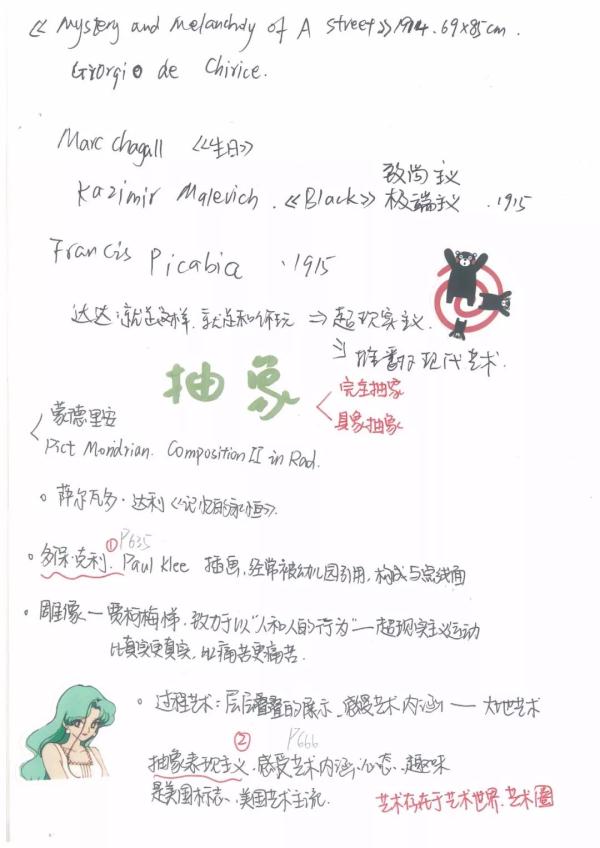 《Mystery and Melancholy of A street》1914. 69×85cm.
Giorgio de Chirice.
Marc chagall 《生日》
致尚主义
Kazimir Malevich. 《Black》极端主义 . 1915
Francis Picabia . 1915
达达:就是这样,就是和你玩 ⇒ 超现实主义.
⇒ 推翻了现代艺术.
抽象
完全抽象
具象抽象
蒙德里安
Pict Mondrian. Composition II in Rad.
萨尔瓦多·达利《记忆的永恒》.
① P635
·保·克利. Paul Klee 插画,经常被幼儿园引用,构成与点线面
雕像—贾柯梅悌,致力于以"人和人的行为"—超现实主义运动
比真实更真实,比痛苦更痛苦.
过程艺术:层层叠叠的展示,感受艺术内涵——大地艺术
② P666
抽象表现主义.感受艺术内涵,心态,趣味
是美国标志,美国艺术主流.
艺术存在于艺术世界.艺术圈